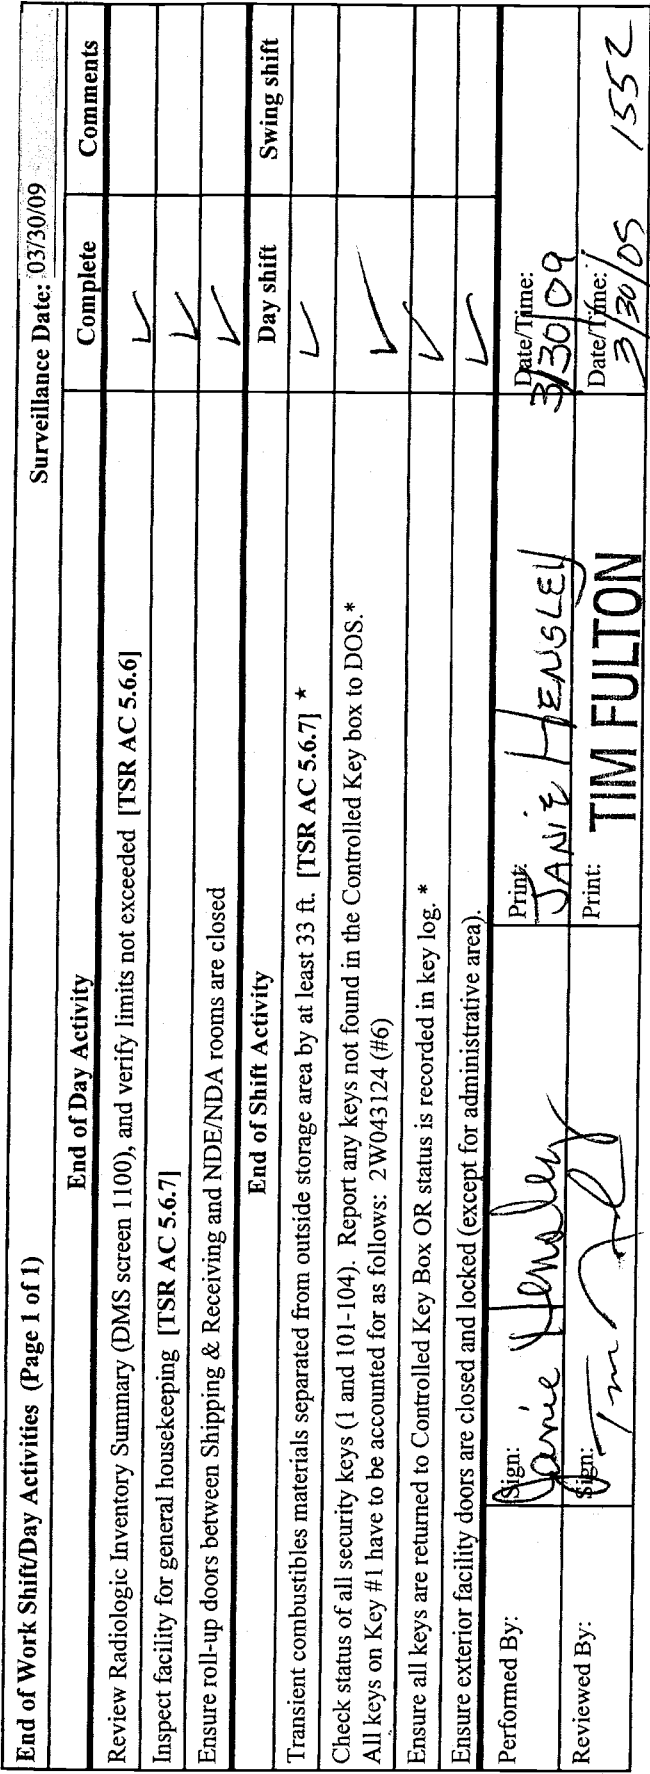 End of Work Shift/Day Activities (Page 1 of 1) Surveillance Date: 03/30/09
End of Day Activity Complete Comments
Review Radiologic Inventory Summary (DMS screen 1100), and verify limits not exceeded [TSR AC 5.6.6] ✓
Inspect facility for general housekeeping [TSR AC 5.6.7] ✓
Ensure roll-up doors between Shipping & Receiving and NDE/NDA rooms are closed ✓
End of Shift Activity Day shift Swing shift
Transient combustibles materials separated from outside storage area by at least 33 ft. [TSR AC 5.6.7] * ✓
Check status of all security keys (1 and 101-104). Report any keys not found in the Controlled Key box to DOS.* ✓
All keys on Key #1 have to be accounted for as follows: 2W043124 (#6)
Ensure all keys are returned to Controlled Key Box OR status is recorded in key log. * ✓
Ensure exterior facility doors are closed and locked (except for administrative area). ✓
Performed By: Sign: Janie Hensley Print: JANIE HENSLEY Date/Time: 3/30/09
Reviewed By: Sign: Print: TIM FULTON Date/Time: 3/30/09 1552